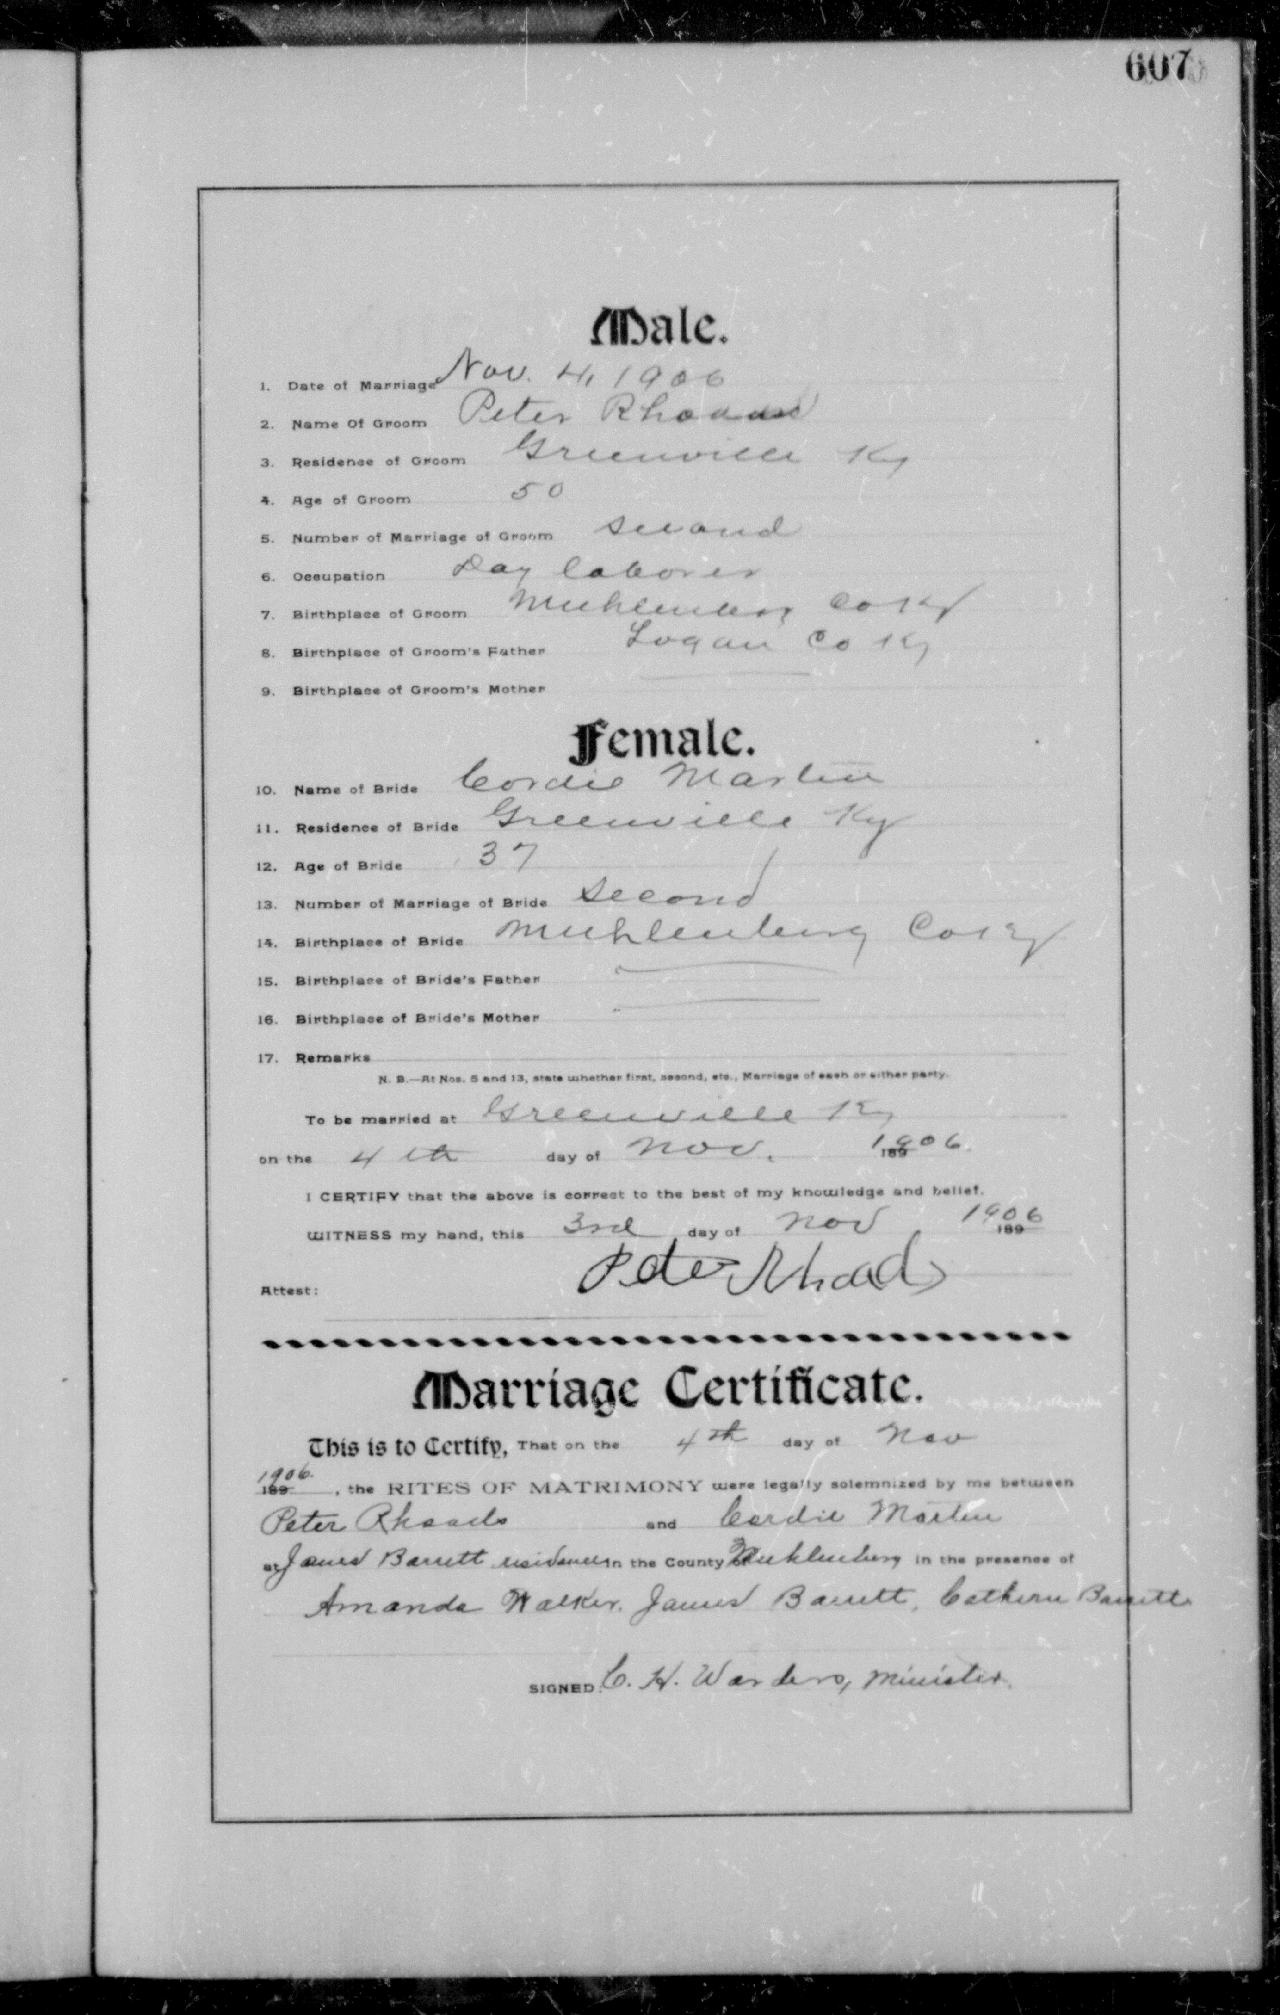 607
Male.
1. Date of Marriage Nov. 4, 1906
2. Name Of Groom Peter Rhoads
3. Residence of Groom Greenville Ky
4. Age of Groom 50
5. Number of Marriage of Groom second
6. Occupation Day laborer
7. Birthplace of Groom Muhlenberg Co Ky
8. Birthplace of Groom's Father Logan Co Ky
9. Birthplace of Groom's Mother
Female.
10. Name of Bride Cordie Martin
11. Residence of Bride Greenville Ky
12. Age of Bride 37
13. Number of Marriage of Bride Second
14. Birthplace of Bride Muhlenberg Co Ky
15. Birthplace of Bride's Father
16. Birthplace of Bride's Mother
17. Remarks
N. B.—At Nos. 5 and 13, state whether first, second, etc., Marriage of each or either party.
To be married at Greenville Ky
on the 4th day of Nov. 189 1906.
I CERTIFY that the above is correct to the best of my knowledge and belief.
WITNESS my hand, this 3rd day of Nov 189 1906
Peter Rhoads
Attest:
Marriage Certificate.
This is to Certify, That on the 4th day of Nov
189 1906. , the RITES OF MATRIMONY were legally solemnized by me between
Peter Rhoads and Cordie Martin
at James Barrett residence in the County Muhlenberg in the presence of
Amanda Walker, James Barrett, Cathern Barrett
SIGNED: C. H. Warders, Minister.